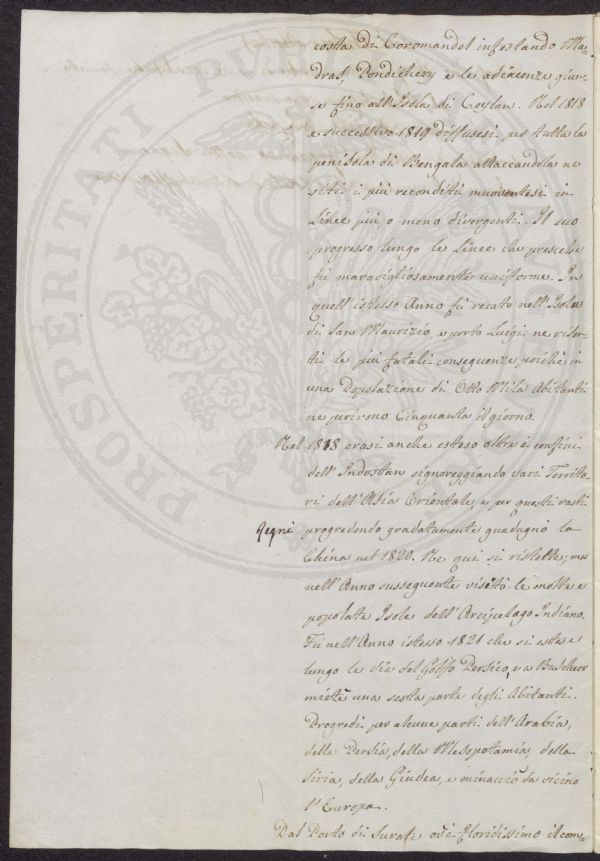 costa di Coromandel infestando Ma-
dras, Pondichery e le adiacenze giun-
se fino all'Isola di Ceylan. Nel 1818
e successivo 1819 diffusesi per tutta la
penisola di Bengala attaccandola ne
siti i più reconditi muoventesi in
Linee più o meno divergenti. Il suo
progresso lungo le Linee che prescelse
fù maravigliosamente uniforme. In
quell'istesso Anno fù recato nell'Isola
di San Maurizio, e porto Luigi ne risen-
tì le più fatali conseguenze poichè in
una Popolazione di Otto Mila Abitanti
ne perirono Cinquanta il giorno.
Nel 1818 erasi anche esteso oltre i confini
dell'Indostan signoreggiando vari Territo-
ri dell'Asia Orientale, e per questi vasti
Regni progredendo gradatamente guadagnò la
China nel 1820. Ne qui si ristette, ma
nell'Anno susseguente visitò le molte e
popolate Isole dell'Arcipelago Indiano.
Fù nell'Anno istesso 1821 che si estese
lungo le vie del Golfo Persico, e a Buscheer
mietè una sesta parte degli Abitanti.
Progredì per alcune parti dell'Arabia,
della Persia, della Mesopotamia, della
Siria, della Giudea, e minacciò da vicino
l'Europa.
Dal Porto di Surate ov'è floridissimo il com-
PROSPERITATI PUBL